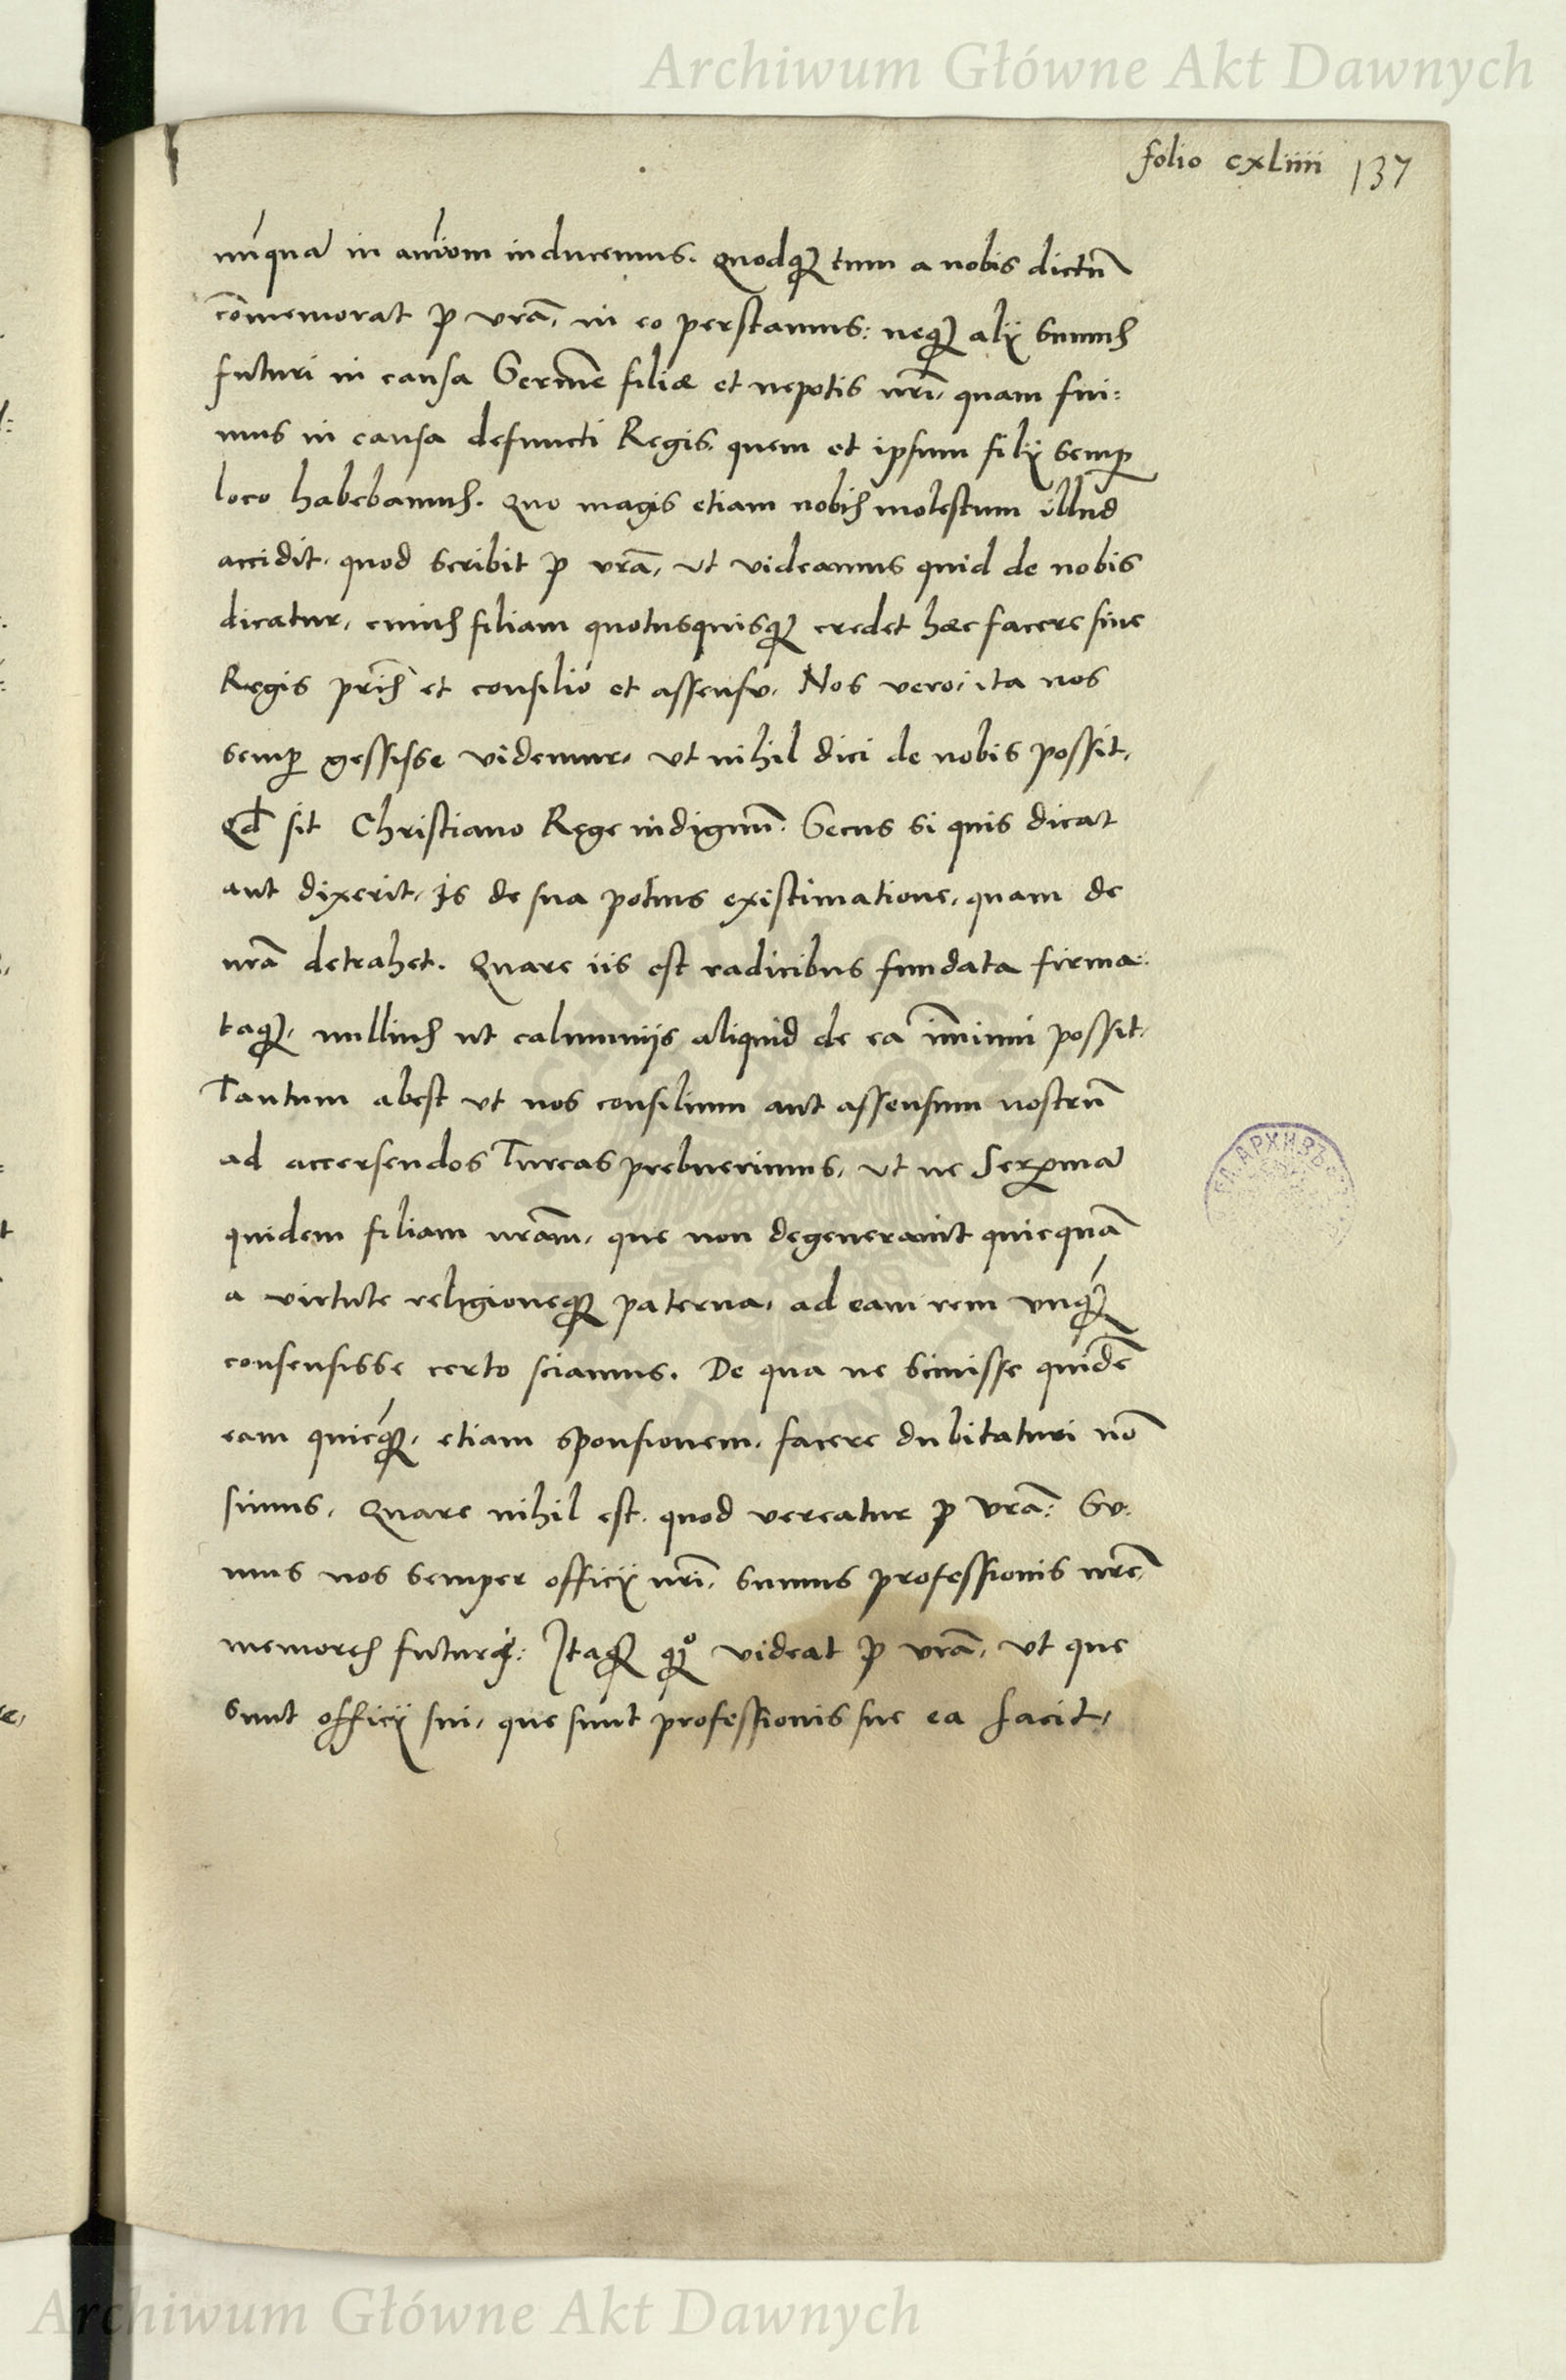 Archiwum Główne Akt Dawnych
folio cxliiii 137
nūqua in aniom inducemus. Quodq₃ tum a nobis dictū
cōmemorat p vrā, in eo perstamus: neq₃ alij sumus
futuri in causa Serme filiæ et nepotis nri, quam fui:
mus in causa defuncti Regis, quem et ipsum filij semp
loco habebamus. Quo magis etiam nobis molestum illud
accidit, quod scribit p vrā, ut videamus quid de nobis
dicatur, cuius filiam quotusquisq₃ credet hæc facere sine
Regis pris et consilio et assensu. Nos vero, ita nos
semp gessisse videmur, ut nihil dici de nobis possit,
Qd sit Christiano Rege indignū. Secus si quis dicat
aut dixerit, is de sua potius existimatione, quam de
nrā detrahet. Quare iis est radicibus fundata firma:
taq₃, nullius ut calumnijs aliquid de ea īminui possit.
Tantum abest ut nos consilium aut assensum nostrū
ad accersendos Turcas prebuerimus, ut ne Serxma
quidem filiam nram, que non degeneravit quicquā
a virtute religioneq₃ paterna, ad eam rem unq₃
consensisse certo sciamus. De qua ne scivisse quidē
eam quicq₃, etiam sponsionem, facere dubitaturi nō
simus. Quare nihil est, quod vereatur p vrā: Su:
mus nos semper officij nri, sumus professionis nre,
memores futuri: Itaq₃ q₃º videat p vrā, ut que
sunt officij sui, que sunt professionis sue ea facit,
Archiwum Główne Akt Dawnych